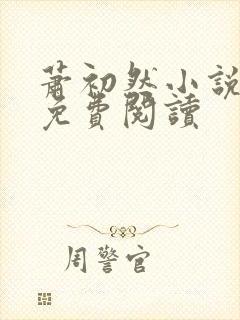 蕭初然小說
免費閱讀
周警官